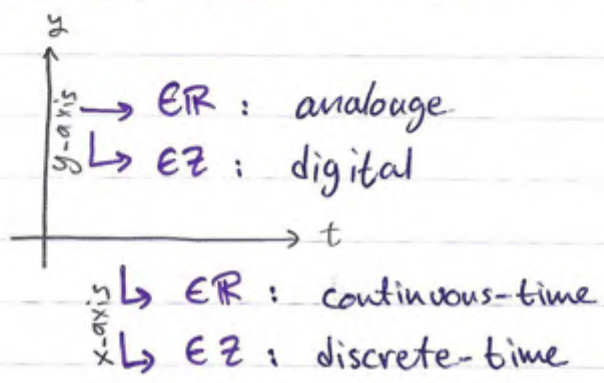 y
y-axis → ∈ℝ : analouge
↳ ∈Z : digital
t
x-axis ↳ ∈ℝ : continuous-time
↳ ∈Z : discrete-time